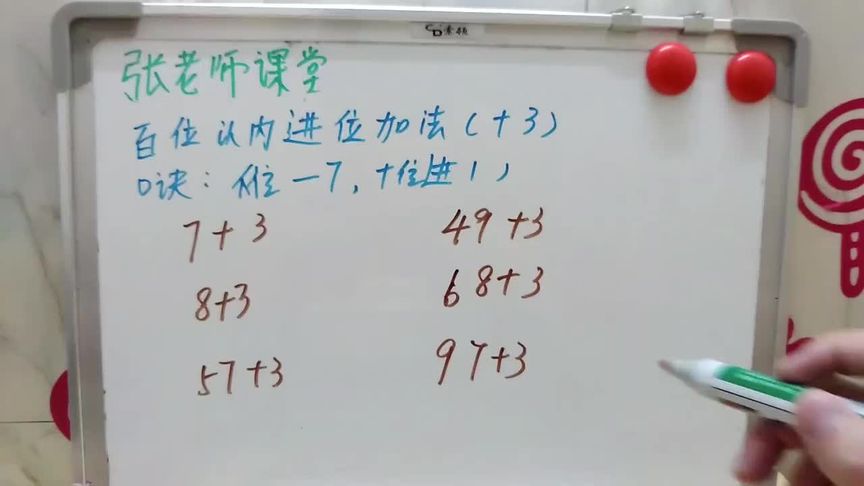 张老师课堂
百位以内进位加法(+3)
口诀:个位-7,十位进1)
7+3
49+3
8+3
68+3
57+3
97+3